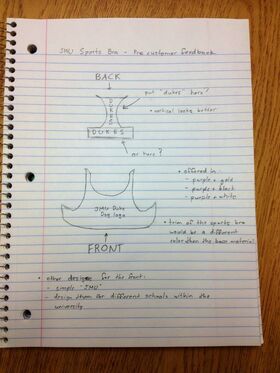 JMU Sports Bra - Pre customer feedback
BACK
put "dukes" here?
DUKES
• vertical looks better
DUKES
or here?
JMU Duke
Dog logo
FRONT
• offered in
- purple + gold
- purple + black
- purple + white
• trim of the sports bra
would be a different
color then the base material
• other designs for the front:
- simple "JMU"
- design them for different schools within the
university